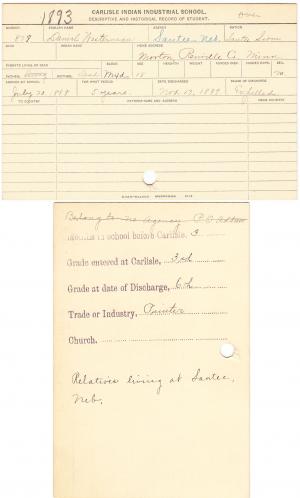 1893
CARLISLE INDIAN INDUSTRIAL SCHOOL.
over
DESCRIPTIVE AND HISTORICAL RECORD OF STUDENT.
NUMBER ENGLISH NAME AGENCY NATION
Daniel Santee Neb. Santee Sioux
INDIAN NAME HOME ADDRESS
Morton, Co. Minn
PARENTS LIVING OR DEAD BLOOD AGE HEIGHT WEIGHT FORCED INSP. FORCED EXPR. SEX
FATHER, MOTHER, Dead 18 M
ARRIVED AT SCHOOL FOR WHAT PERIOD DATE DISCHARGED CAUSE OF DISCHARGE
July 5 years. Nov. 17, 1899 Expelled
TO COUNTRY PATRONS NAME AND ADDRESS FROM COUNTRY
Belongs to no Agency P.O.
Months in school before Carlisle, 3
Grade entered at Carlisle, 3rd
Grade at date of Discharge, 6th
Trade or Industry, Printer
Church,
Relatives living at Santee,
Neb.